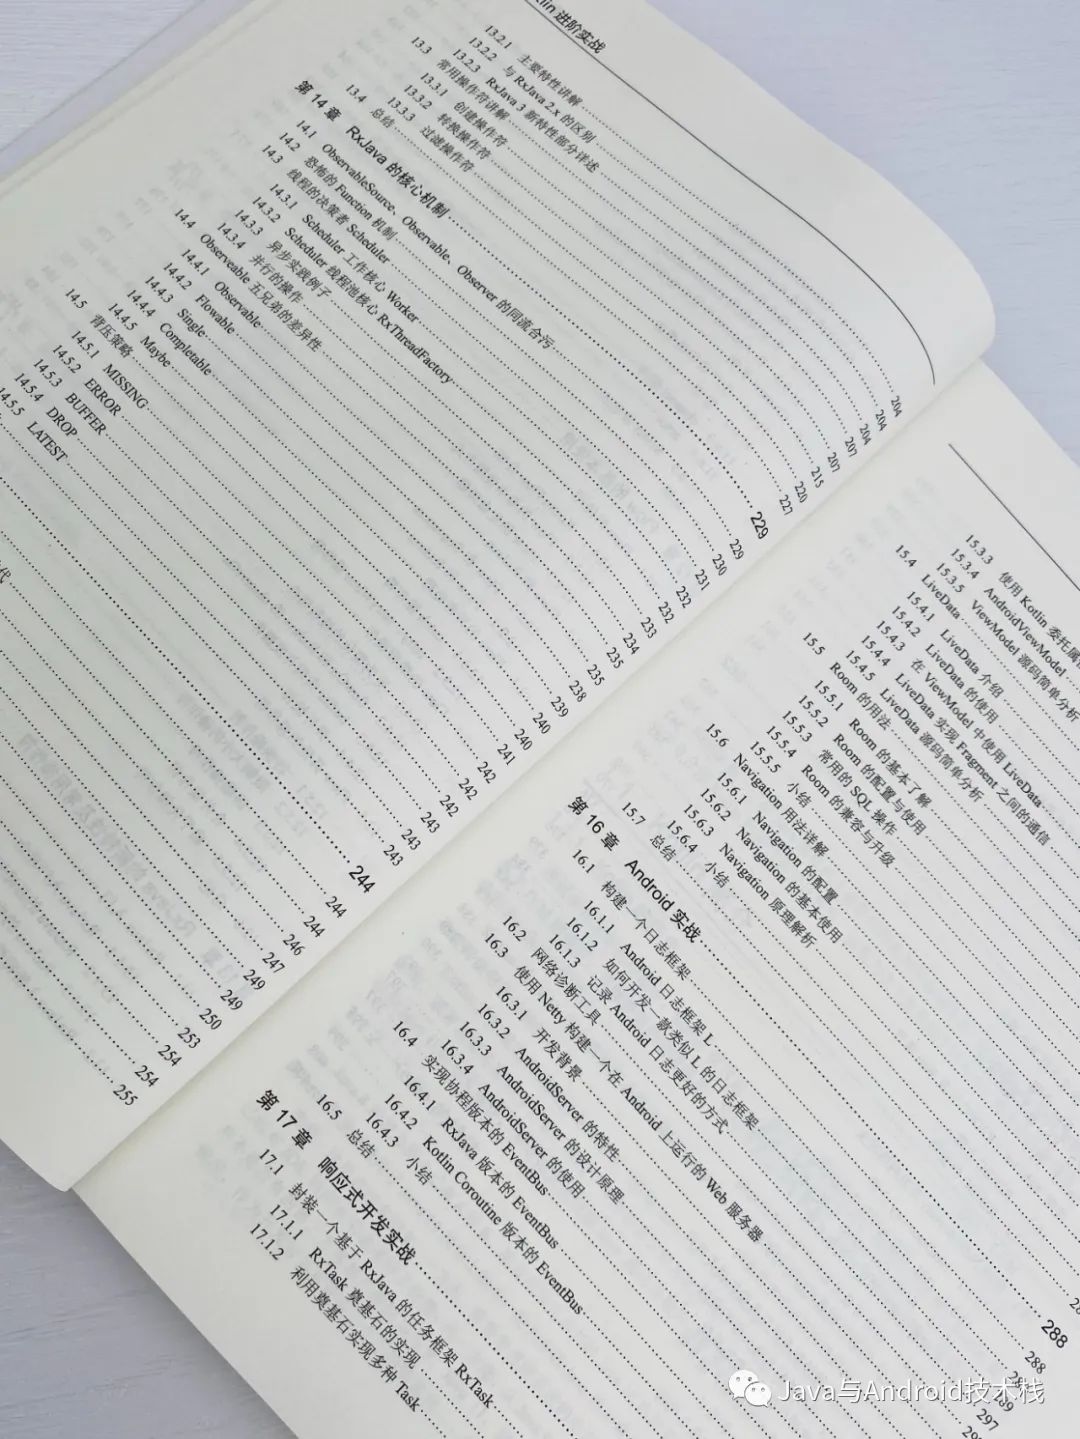 进阶实战
13.2.1 主要特性讲解 204
13.2.2 与 RxJava 2.x 的区别 204
13.2.3 RxJava 3 新特性部分详述 204
13.3 常用操作符讲解 207
13.3.1 创建操作符 207
13.3.2 转换操作符 215
13.3.3 过滤操作符 220
13.4 总结 227
第 14 章 RxJava 的核心机制 229
14.1 ObservableSource、Observable、Observer 的同流合污 229
14.2 恐怖的 Function 机制 230
14.3 线程的决策者 Scheduler 231
14.3.1 Scheduler 工作核心 Worker 232
14.3.2 Scheduler 线程池核心 RxThreadFactory 232
14.3.3 异步实践例子 233
14.3.4 并行的操作 234
14.4 Observeable 五兄弟的差异性 235
14.4.1 Observable 235
14.4.2 Flowable 238
14.4.3 Single 239
14.4.4 Completable 240
14.4.5 Maybe 240
14.5 背压策略 241
14.5.1 MISSING 242
14.5.2 ERROR 242
14.5.3 BUFFER 243
14.5.4 DROP 243
14.5.5 LATEST 243
244
244
244
代 246
247
249
249
250
253
254
254
255
15.3.3 使用 Kotlin 委托属
15.3.4 AndroidViewModel
15.3.5 ViewModel 源码简单分析
15.4 LiveData
15.4.1 LiveData 介绍
15.4.2 LiveData 的使用
15.4.3 在 ViewModel 中使用 LiveData
15.4.4 LiveData 实现 Fragment 之间的通信
15.4.5 LiveData 源码简单分析
15.5 Room 的用法
15.5.1 Room 的基本了解
15.5.2 Room 的配置与使用
15.5.3 常用的 SQL 操作
15.5.4 Room 的兼容与升级
15.5.5 小结
15.6 Navigation 用法详解
15.6.1 Navigation 的配置
15.6.2 Navigation 的基本使用
15.6.3 Navigation 原理解析
15.6.4 小结
15.7 总结
第 16 章 Android 实战 288
16.1 构建一个日志框架 288
16.1.1 Android 日志框架 L
16.1.2 如何开发一款类似 L 的日志框架 289
16.1.3 记录 Android 日志更好的方式 297
16.2 网络诊断工具
16.3 使用 Netty 构建一个在 Android 上运行的 Web 服务器
16.3.1 开发背景
16.3.2 AndroidServer 的特性
16.3.3 AndroidServer 的设计原理
16.3.4 AndroidServer 的使用
16.4 实现协程版本的 EventBus
16.4.1 RxJava 版本的 EventBus
16.4.2 Kotlin Coroutine 版本的 EventBus
16.4.3 小结
16.5 总结
第 17 章 响应式开发实战
17.1 封装一个基于 RxJava 的任务框架 RxTask
17.1.1 RxTask 奠基石的实现
17.1.2 利用奠基石实现多种 Task
Java与Android技术栈